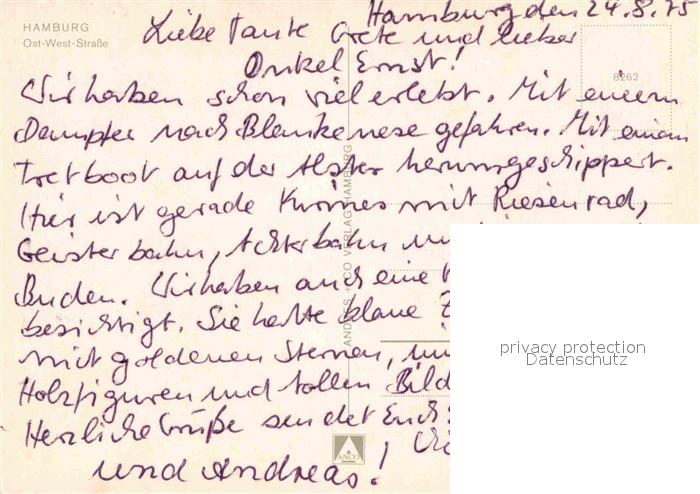 HAMBURG
Ost-West-Straße
Hamburg den 24.8.75
Liebe Tante Grete und lieber
Onkel Ernst!
8262
Wir haben schon viel erlebt. Mit einem
Dampfer nach Blankenese gefahren. Mit einem
Tretboot auf der Alster herumgeschippert.
Hier ist gerade Kirmes mit Riesenrad,
Geisterbahn, Achterbahn
Buden. Wir haben auch eine
besichtigt. Sie hatte blaue
mit goldenen Sternen,
Holzfiguren und tollen Bild
Herzliche Grüße sendet Euch
und Andreas!
ANDRES + CO VERLAG HAMBURG
ANCO
privacy protection
Datenschutz